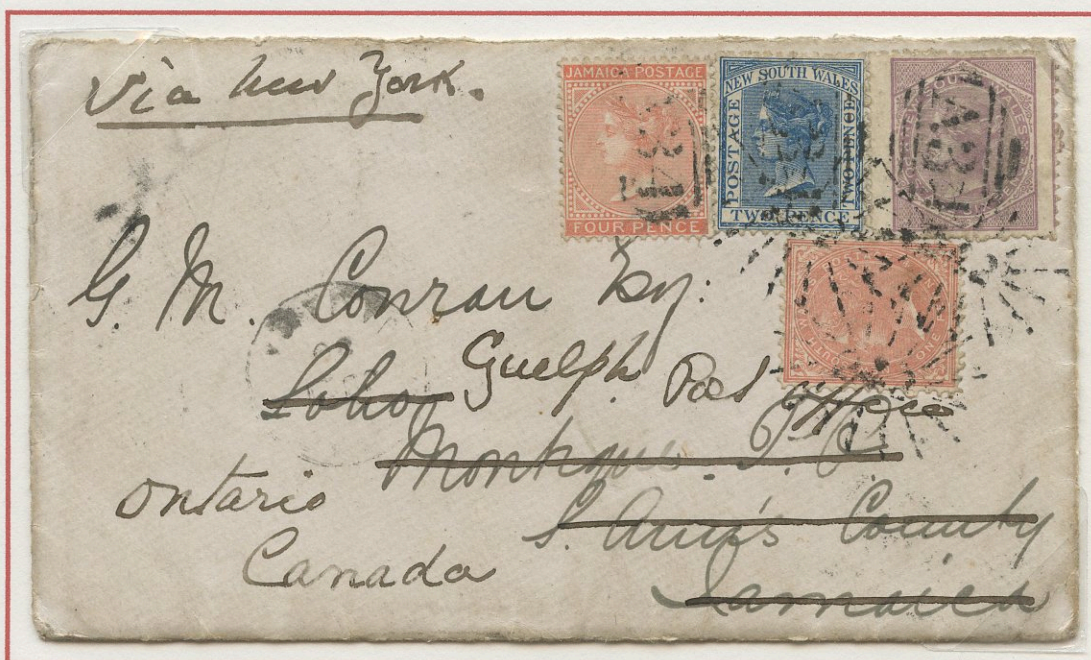 Via New York.
JAMAICA POSTAGE
FOUR PENCE
NEW SOUTH WALES
POSTAGE
TWO PENCE
TWO PENCE
WALES
ONE
G. M. Conran Esq:
Soho Guelph Post Office
Moneague P. O.
Ontario
St. Ann's County
Canada
Jamaica